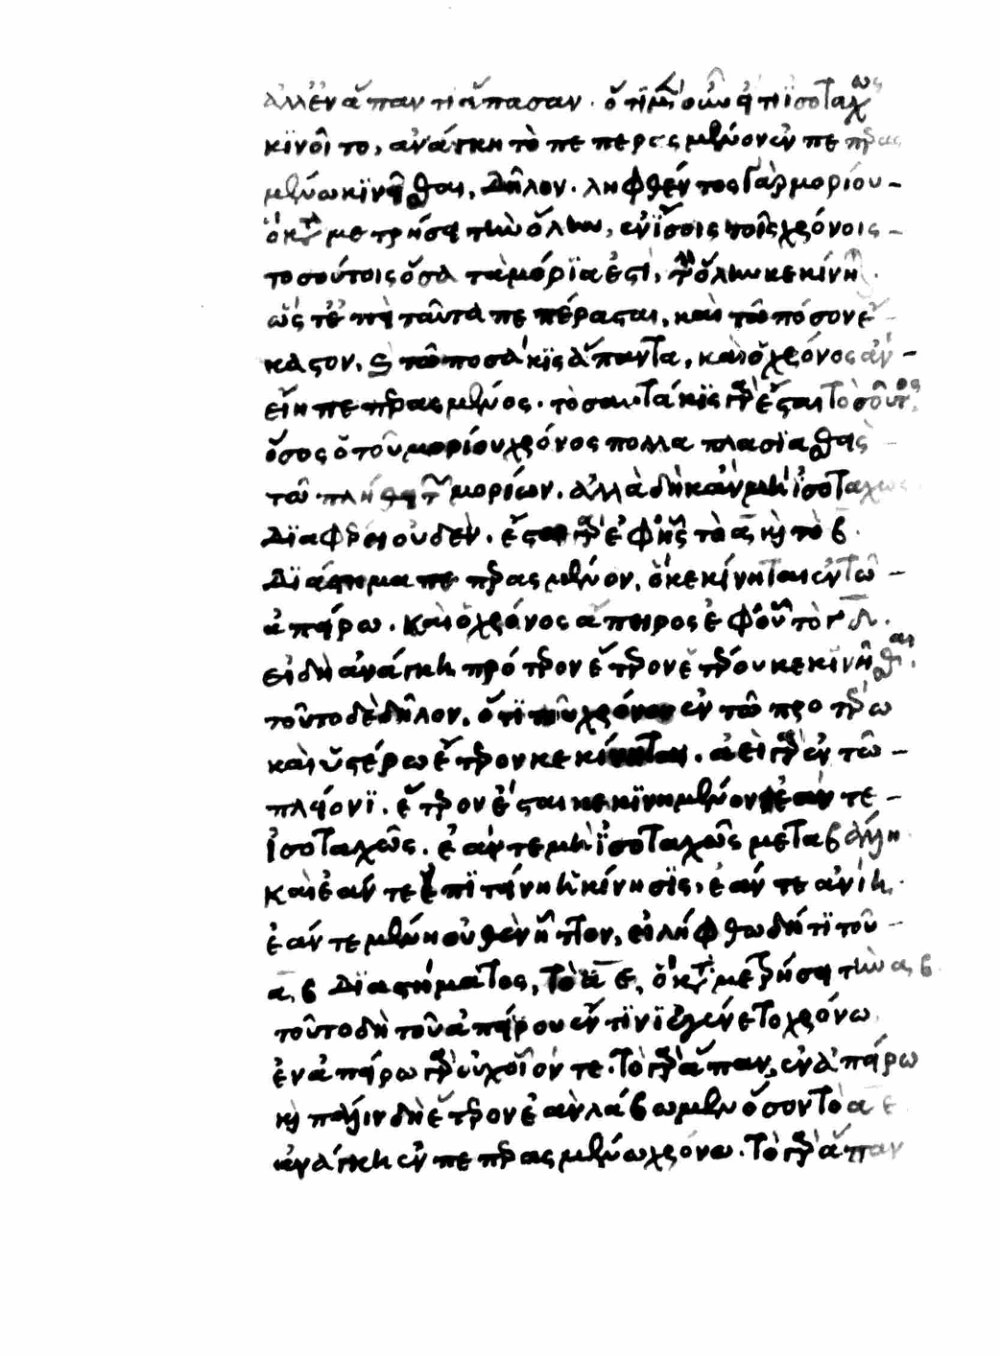 ἀλλ' ἐν ἅπαντι ἅπασαν. ὅτι μὲν οὖν εἴ τι ἰσοταχῶς
κινοῖτο, ἀνάγκη τὸ πεπερασμένον ἐν πεπερας
μένω κινεῖσθαι, δῆλον. ληφθέντος γὰρ μορίου
ὃ καταμετρήσει τὴν ὅλην, ἐν ἴσοις τοῖς χρόνοις
τοσούτοις ὅσα τὰ μόρια ἐστὶ, τὴν ὅλην κεκίνηται.
ὥστ' ἐπεὶ ταῦτα πεπέρασται, καὶ τῶ πόσον ἕ
καστον, καὶ τῶ ποσάκις ἅπαντα, καὶ ὁ χρόνος ἂν
εἴη πεπερασμένος. τοσαυτάκις γὰρ ἔσται τοσοῦτος,
ὅσος ὁ τοῦ μορίου χρόνος πολλαπλασιασθεὶς
τῶ πλήθει τῶν μορίων. ἀλλὰ δὴ κἂν μὴ ἰσοταχῶς
διαφέρει οὐδέν. ἔστω γὰρ ἐφ' ἧς τὸ α καὶ τὸ β
διάστημα πεπερασμένον, ὃ κεκίνηται ἐν τῶ
ἀπείρω. καὶ ὁ χρόνος ἄπειρος ἐφ' οὗ τὸ γδ.
εἰ δὴ ἀνάγκη πρότερον ἕτερον ἑτέρου κεκινῆσθαι,
τοῦτο δὲ δῆλον, ὅτι τοῦ χρόνου ἐν τῶ προτέρω
καὶ ὑστέρω ἕτερον κεκίνηται. ἀεὶ γὰρ ἐν τῶ
πλείονι. ἕτερον ἔσται κεκινημένον ἐάν τε
ἰσοταχῶς. ἐάν τε μὴ ἰσοταχῶς μεταβάλλη
καὶ ἐάν τε ἐπιτείνη ἡ κίνησις, ἐάν τε ἀνίη,
ἐάν τε μένη οὐθὲν ἧττον, εἰλήφθω δή τι τοῦ
α, β διαστήματος, τὸ α ε, ὃ καταμετρήσει τὴν α, β
τοῦτο δὴ τοῦ ἀπείρου ἔν τινι ἐγένετο χρόνω
ἐν ἀπείρω γὰρ οὐχ οἷόν τε. τὸ γὰρ ἅπαν, ἐν ἀπείρω
καὶ πάλιν δὴ ἕτερον ἐὰν λάβωμεν ὅσον τὸ α ε
ἀνάγκη ἐν πεπερασμένω χρόνω. τὸ γὰρ ἅπαν